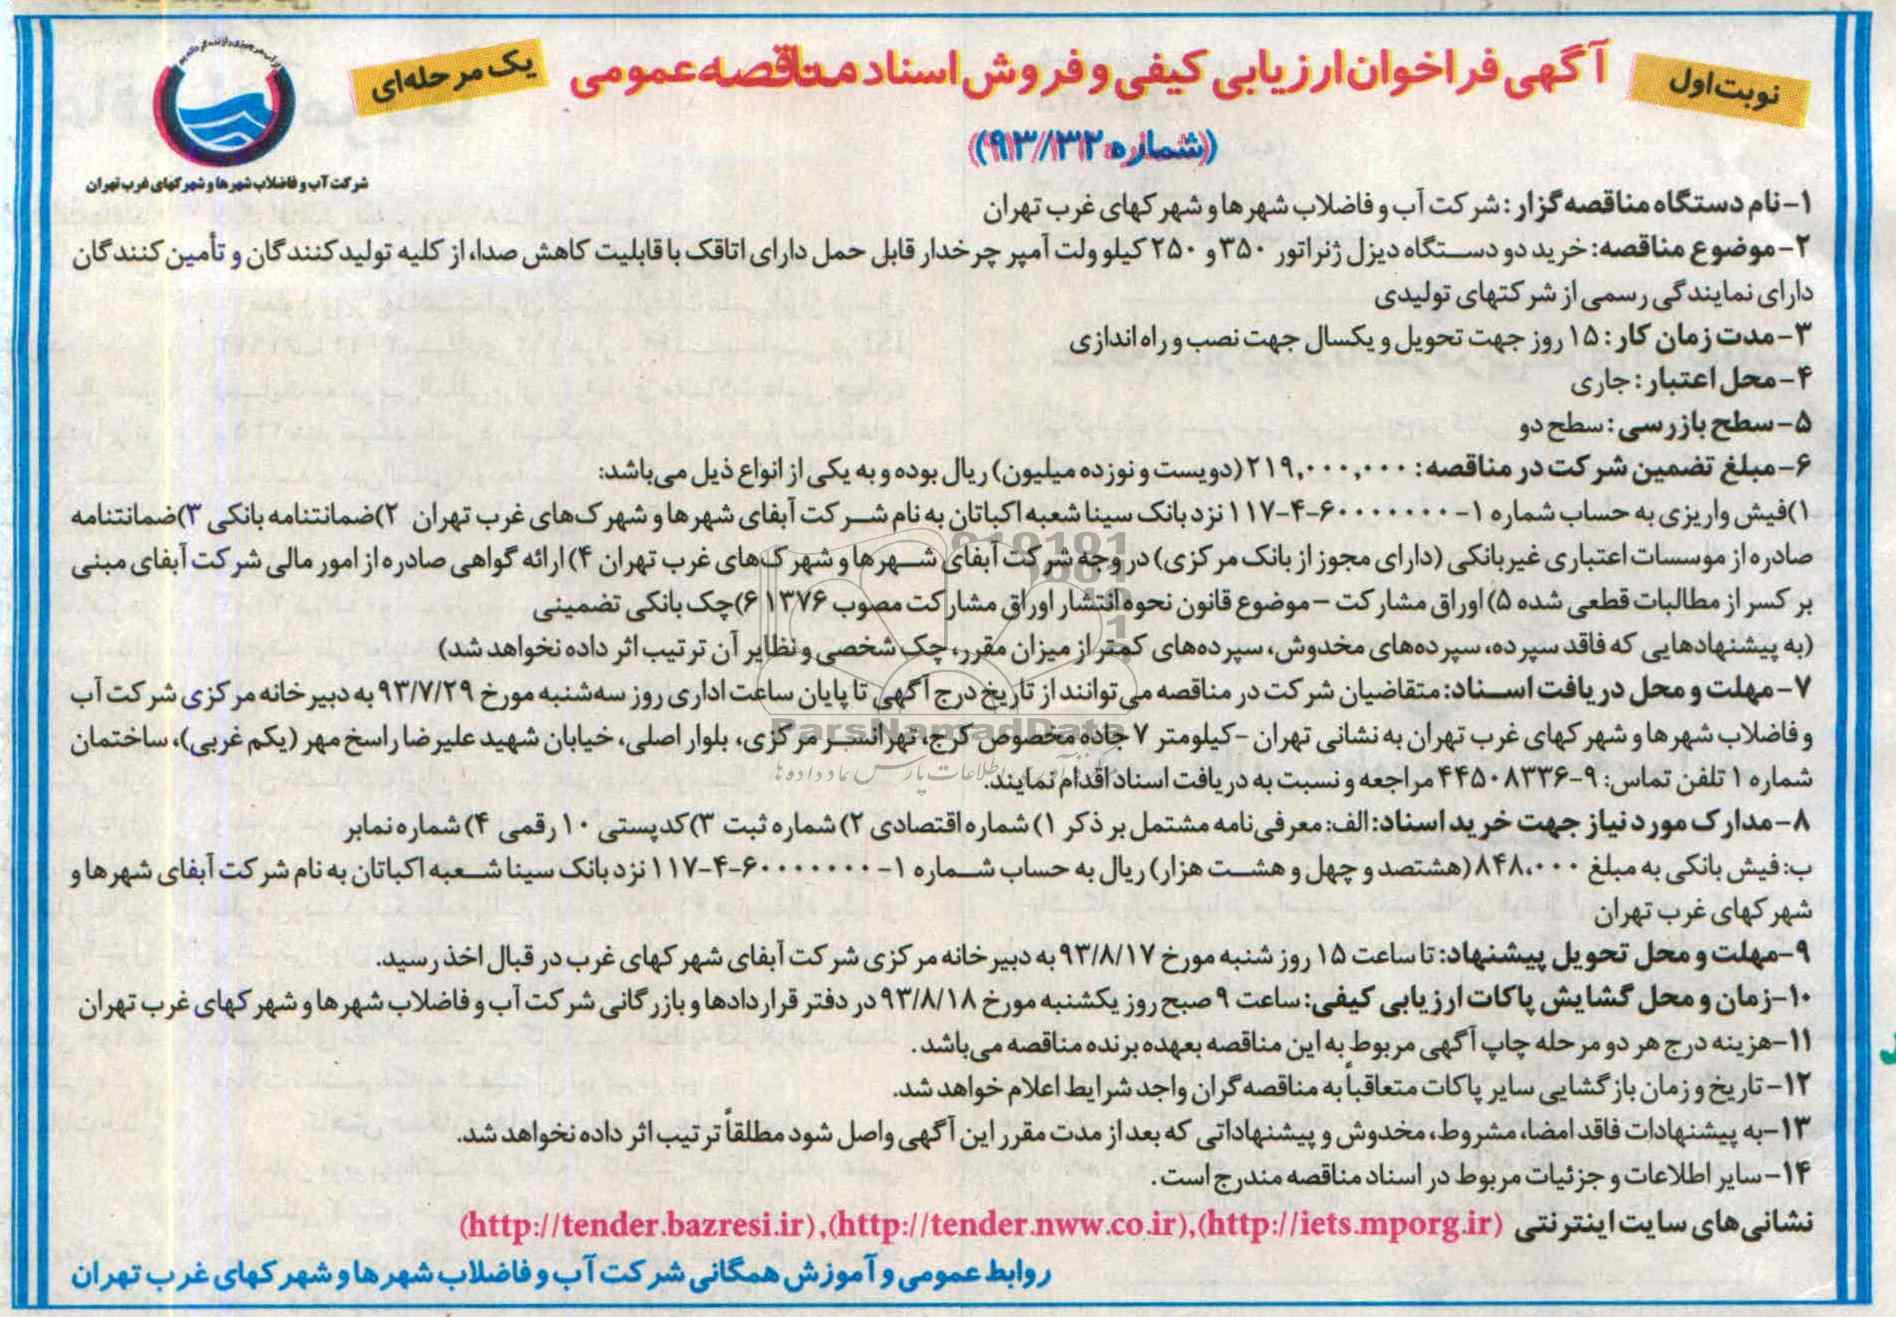 نوبت اول
آگهی فراخوان ارزیابی کیفی و فروش اسناد مناقصه عمومی
یک مرحله‌ای
(شماره ۹۳/۳۲)
شرکت آب و فاضلاب شهرها و شهرکهای غرب تهران
۱-نام دستگاه مناقصه گزار: شرکت آب و فاضلاب شهرها و شهرکهای غرب تهران
۲-موضوع مناقصه: خرید دو دستگاه دیزل ژنراتور ۳۵۰ و ۲۵۰ کیلو ولت آمپر چرخدار قابل حمل دارای اتاقک با قابلیت کاهش صدا، از کلیه تولیدکنندگان و تأمین کنندگان
دارای نمایندگی رسمی از شرکتهای تولیدی
۳-مدت زمان کار: ۱۵ روز جهت تحویل و یکسال جهت نصب و راه اندازی
۴-محل اعتبار: جاری
۵-سطح بازرسی: سطح دو
۶-مبلغ تضمین شرکت در مناقصه: ۲۱۹,۰۰۰,۰۰۰ (دویست و نوزده میلیون) ریال بوده و به یکی از انواع ذیل می‌باشد:
۱)فیش واریزی به حساب شماره ۱-۶۰۰۰۰۰۰۰-۴-۱۱۷ نزد بانک سینا شعبه اکباتان به نام شرکت آبفای شهرها و شهرک‌های غرب تهران ۲)ضمانتنامه بانکی ۳)ضمانتنامه
صادره از موسسات اعتباری غیربانکی (دارای مجوز از بانک مرکزی) در وجه شرکت آبفای شهرها و شهرک‌های غرب تهران ۴) ارائه گواهی صادره از امور مالی شرکت آبفای مبنی
بر کسر از مطالبات قطعی شده ۵) اوراق مشارکت – موضوع قانون نحوه انتشار اوراق مشارکت مصوب ۱۳۷۶ ۶)چک بانکی تضمینی
(به پیشنهادهایی که فاقد سپرده، سپرده‌های مخدوش، سپرده‌های کمتر از میزان مقرر، چک شخصی و نظایر آن ترتیب اثر داده نخواهد شد)
۷-مهلت و محل دریافت اسناد: متقاضیان شرکت در مناقصه می‌توانند از تاریخ درج آگهی تا پایان ساعت اداری روز سه‌شنبه مورخ ۹۳/۷/۲۹ به دبیرخانه مرکزی شرکت آب
و فاضلاب شهرها و شهرکهای غرب تهران به نشانی تهران -کیلومتر ۷ جاده مخصوص کرج، تهرانسر مرکزی، بلوار اصلی، خیابان شهید علیرضا راسخ مهر (یکم غربی)، ساختمان
شماره ۱ تلفن تماس: ۹-۴۴۵۰۸۳۳۶ مراجعه و نسبت به دریافت اسناد اقدام نمایند.
۸-مدارک مورد نیاز جهت خرید اسناد: الف: معرفی‌نامه مشتمل بر ذکر ۱) شماره اقتصادی ۲) شماره ثبت ۳)کدپستی ۱۰ رقمی ۴) شماره نمابر
ب: فیش بانکی به مبلغ ۸۴۸،۰۰۰ (هشتصد و چهل و هشت هزار) ریال به حساب شماره ۱-۶۰۰۰۰۰۰۰-۴-۱۱۷ نزد بانک سینا شعبه اکباتان به نام شرکت آبفای شهرها و
شهرکهای غرب تهران
۹-مهلت و محل تحویل پیشنهاد: تا ساعت ۱۵ روز شنبه مورخ ۹۳/۸/۱۷ به دبیرخانه مرکزی شرکت آبفای شهرکهای غرب در قبال اخذ رسید.
۱۰-زمان و محل گشایش پاکات ارزیابی کیفی: ساعت ۹ صبح روز یکشنبه مورخ ۹۳/۸/۱۸ در دفتر قراردادها و بازرگانی شرکت آب و فاضلاب شهرها و شهرکهای غرب تهران
۱۱-هزینه درج هر دو مرحله چاپ آگهی مربوط به این مناقصه بعهده برنده مناقصه می‌باشد.
۱۲- تاریخ و زمان بازگشایی سایر پاکات متعاقباً به مناقصه گران واجد شرایط اعلام خواهد شد.
۱۳-به پیشنهادات فاقد امضا، مشروط، مخدوش و پیشنهاداتی که بعد از مدت مقرر این آگهی واصل شود مطلقاً ترتیب اثر داده نخواهد شد.
۱۴-سایر اطلاعات و جزئیات مربوط در اسناد مناقصه مندرج است.
نشانی‌های سایت اینترنتی (http://iets.mporg.ir),(http://tender.nww.co.ir),(http://tender.bazresi.ir)
روابط عمومی و آموزش همگانی شرکت آب و فاضلاب شهرها و شهرکهای غرب تهران
ParsNamadData